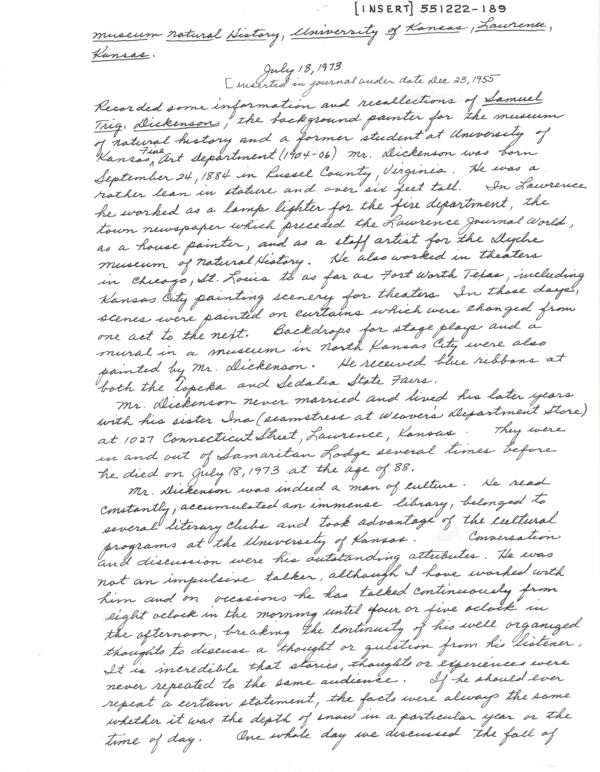 [INSERT] 551222-189
Museum Natural History, University of Kansas, Lawrence,
Kansas.
July 18, 1973
[inserted in journal under date Dec 23, 1955
Recorded some information and recallections of Samuel
Trig. Dickenson, the background painter for the museum
of natural history and a former student at University of
Kansas, Fine Art Department (1904-06) Mr. Dickenson was born
September 24, 1884 in Russel County, Virginia. He was a
rather lean in stature and over six feet tall. In Lawrence
he worked as a lamp lighter for the fire department, the
town newspaper which preceded the Lawrence Journal World,
as a house painter, and as a staff artist for the Dyche
Museum of Natural History. He also worked in theaters
in Chicago, St. Louis to as far as Fort Worth Texas, including
Kansas City painting scenery for theaters. In those days,
scenes were painted on curtains which were changed from
one act to the next. Backdrops for stage plays and a
mural in a museum in North Kansas City were also
painted by Mr. Dickenson. He received blue ribbons at
both the Topeka and Sedalia State Fairs.
Mr. Dickenson never married and lived his later years
with his sister Ina (seamstress at Weaver's Department Store)
at 1027 Connecticut Street, Lawrence, Kansas. They were
in and out of Samaritan Lodge several times before
he died on July 18, 1973 at the age of 88.
Mr. Dickenson was indeed a man of culture. He read
constantly, accumulated an immense library, belonged to
several literary clubs and took advantage of the cultural
programs at the University of Kansas. Conversation
and discussion were his outstanding attributes. He was
not an impulsive talker, although I have worked with
him and on occasions he has talked continuously from
eight oclock in the morning until four or five oclock in
the afternoon, breaking the continuity of his well organized
thoughts to discuss a thought or question from his listener.
It is incredible that stories, thoughts or experiences were
never repeated to the same audience. If he should ever
repeat a certain statement, the facts were always the same
whether it was the depth of snow in a particular year or the
time of day. One whole day we discussed the fall of